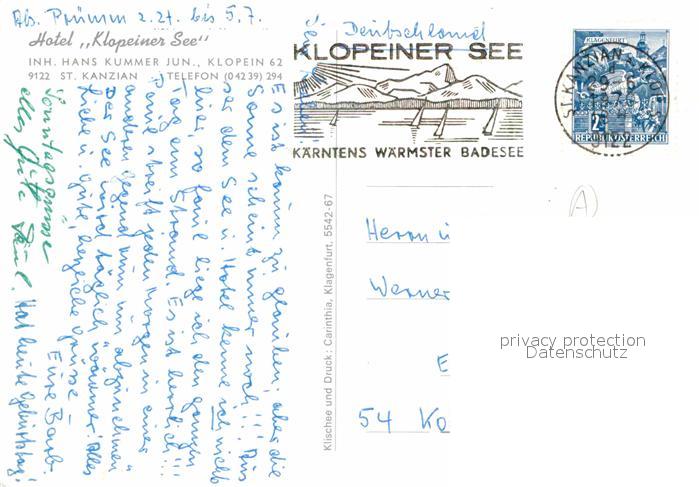 Abs. Prümm z. Zt. bis 5.7.
Hotel „Klopeiner See"
INH. HANS KUMMER JUN., KLOPEIN 62
9122 ST. KANZIAN TELEFON (04239) 294
Deutschland
KLOPEINER SEE
KÄRNTENS WÄRMSTER BADESEE
KLAGENFURT
2S
REPUBLIK ÖSTERREICH
ST. KANZIAN
9122
A
Es ist kaum zu glauben, aber die
Sonne scheint immer noch!!! Aus
ser dem See u. Hotel kenne ich nichts
hier, so faul liege ich den ganzen
Tag am Strand. Es ist herrlich!!!
streift jeden Morgen in einer
anderen Gegend rum um abzunehmen
Der See wird täglich wärmer. Alles
Liebe u. Gute, herzliche Grüsse
Eure
Sonntagsgrüsse
alles Gute
Hat heute Geburtstag!
Klischee und Druck: Carinthia, Klagenfurt, 5542-67
Herrn u
Werner
E
54 Ko
privacy protection
Datenschutz